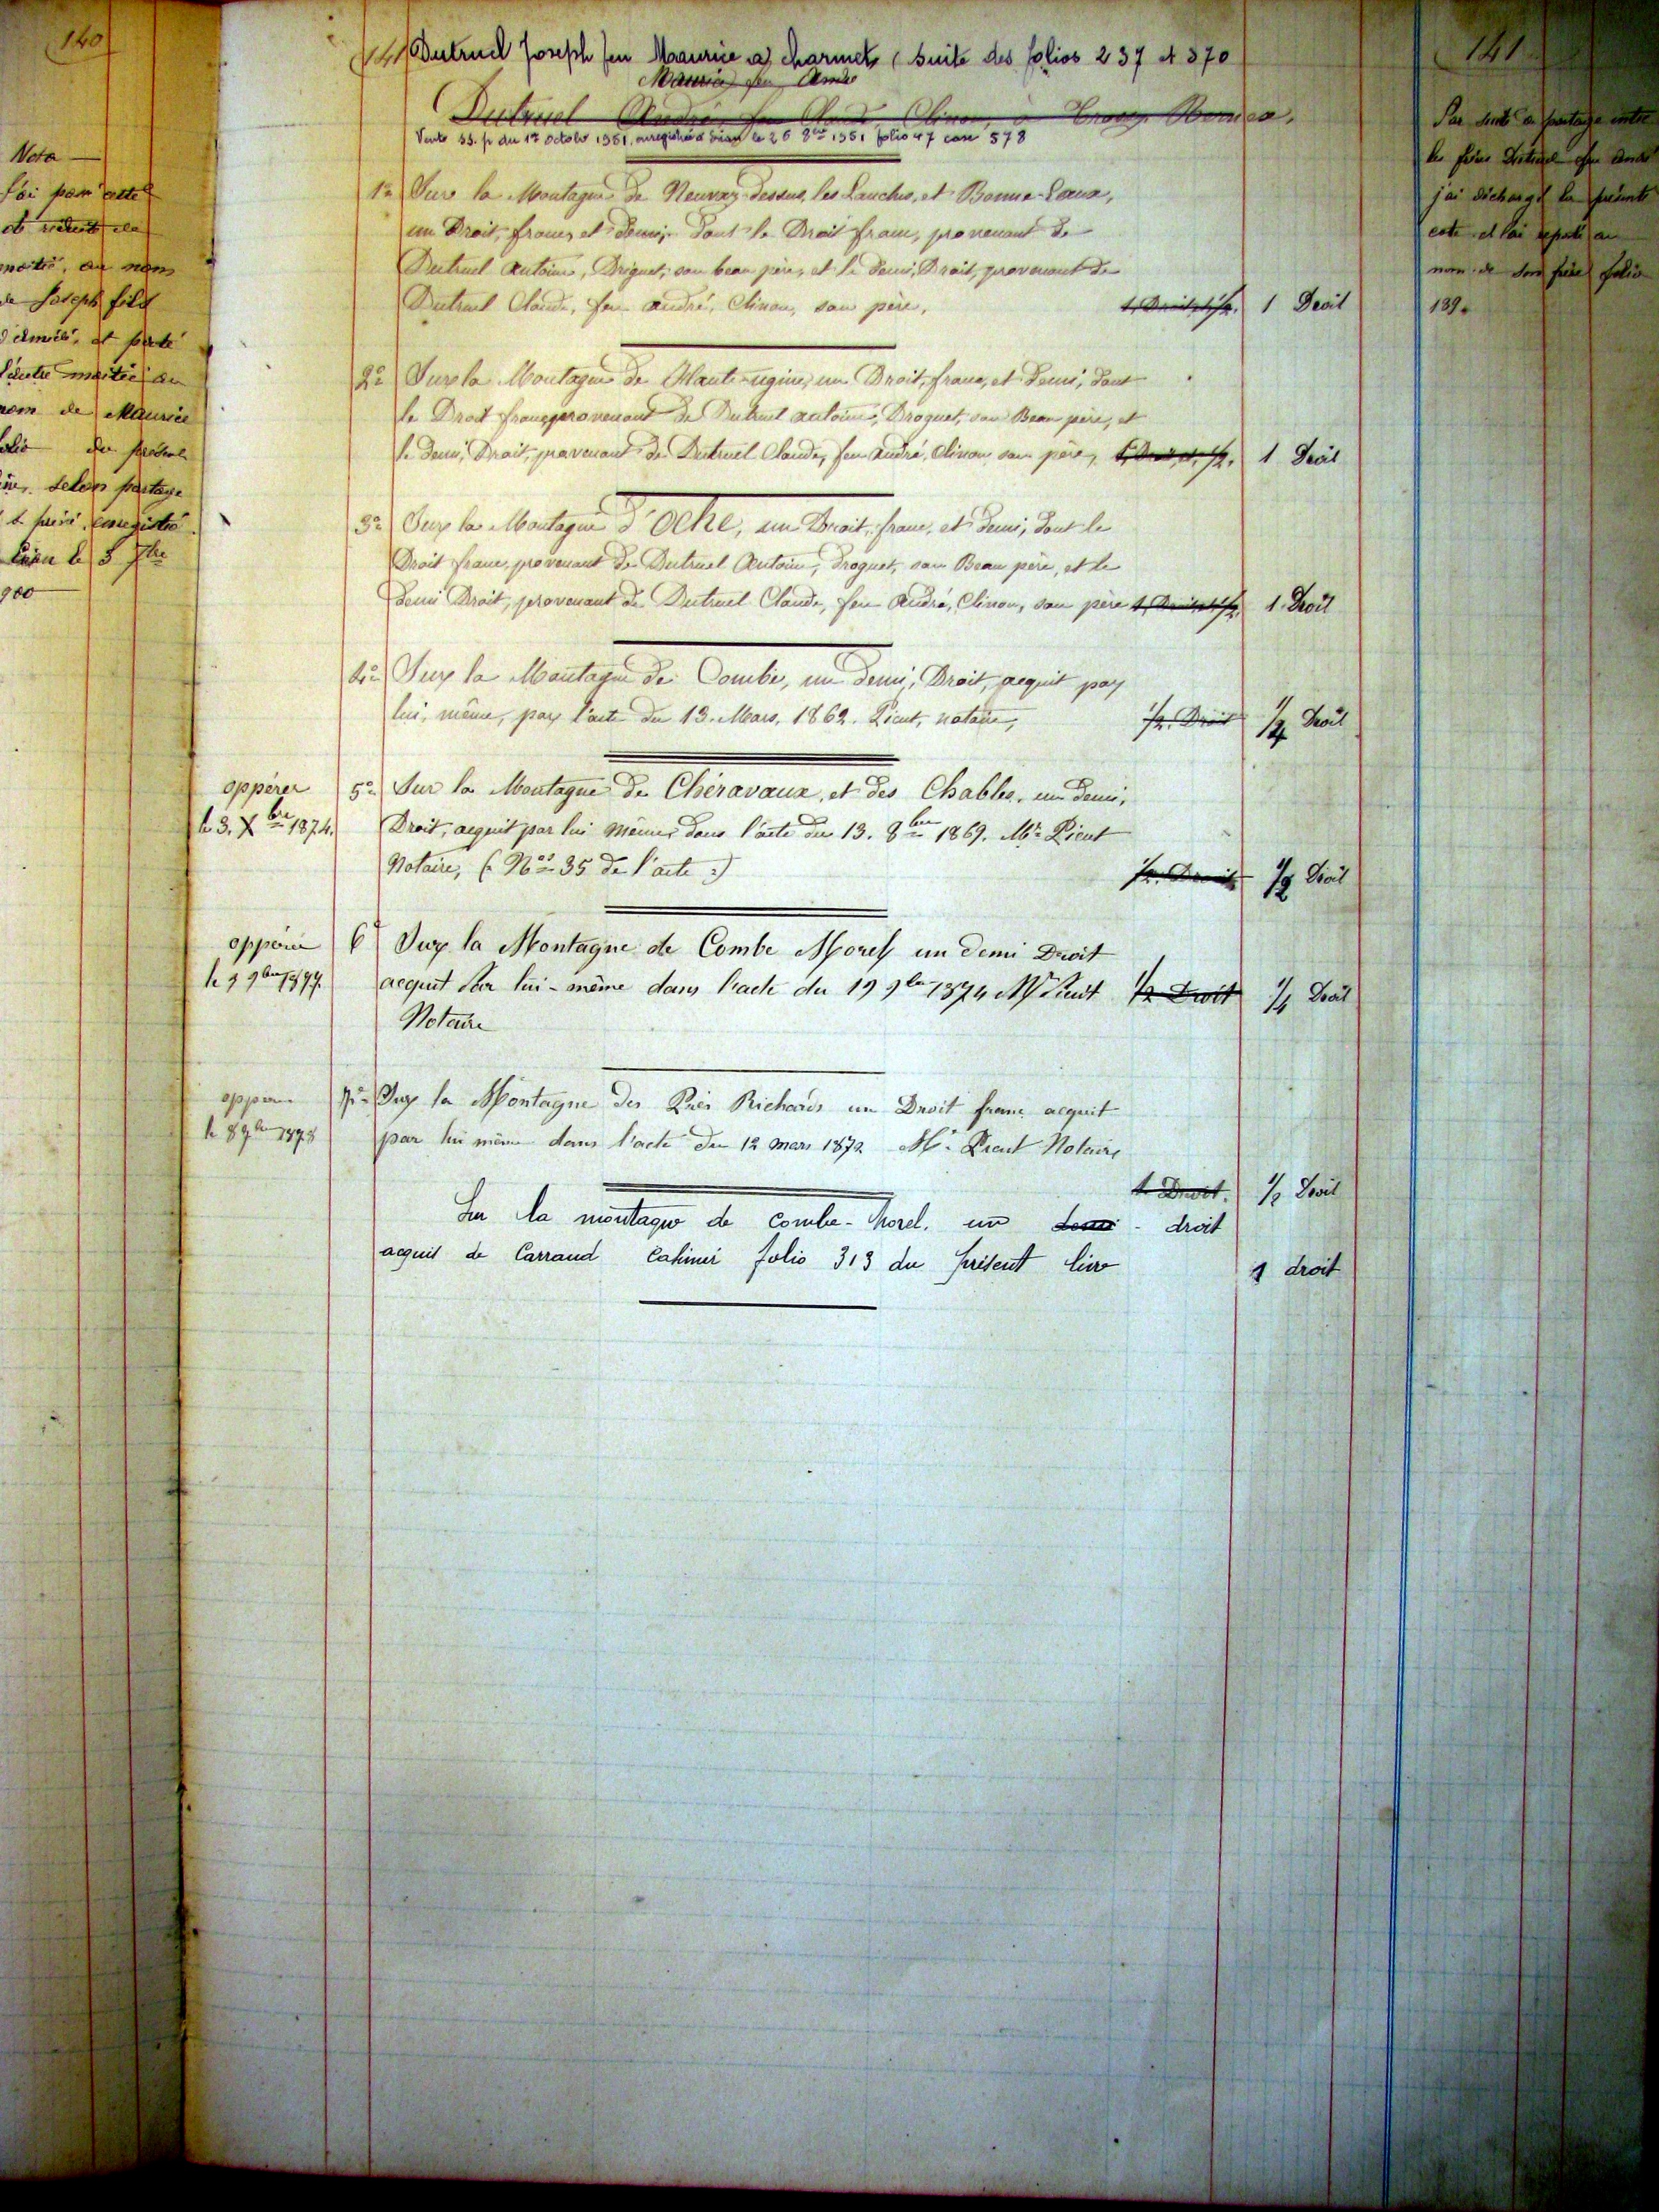 140
Nota
J'ai par cette
et réduit de
moitié, au nom
de Joseph fils
et porté
l'autre moitié au
nom de Maurice
folio du présent
selon partage
s. privé enregistré
Evian le 3 7bre
900
141 Dutruel Joseph feu Maurice à Charmet, (suite des folios 237 et 370
Maurice feu André
Dutruel André, feu Claude, Clinon, à
Vente ss. p du 17 octobre 1951, enregistrée à Evian le 26 8bre 1951 folio 47 case 578
1° Sur la Montagne de Neuvaz-dessus, les Lanches, et Bonne-Eaux,
un Droit, franc, et demi; dont le Droit franc, provenant de
Dutruel Antoine, Droguet, son beau père, et le demi, Droit, provenant de
Dutruel Claude, feu André, Clinon, son père, 1, Droit, et 1/2. 1 Droit
2° Sur la Montagne de Haute-ugine, un Droit, franc, et demi, dont
le Droit franc, provenant de Dutruel Antoine, Droguet, son Beau père, et
le demi, Droit, provenant de Dutruel Claude, feu André, Clinon son père, 1, Droit, et, 1/2. 1 Droit
3° Sur la Montagne d'Oche, un Droit, franc, et demi, dont le
Droit franc, provenant de Dutruel Antoine, Droguet, son Beau père, et le
demi Droit, provenant de Dutruel Claude, feu André, Clinon, son père 1, Droit, et 1/2. 1 Droit
4° Sur la Montagne de Combe, un demi, Droit, acquit par
lui, même, par l'acte du 13. Mars, 1862. Picut, notaire, 1/2. Droit 1/4 Droit
opperer 5° Sur la Montagne de Chéravaux, et des Chables, un demi,
le 3. Xbre 1874. Droit, acquit par lui même, dans l'acte du 13. 8bre 1869. Me Picut
Notaire, (: No 35 de l'acte :) 1/2. Droit 1/2 Droit
opperer 6° Sur la Montagne de Combe Morel un demi Droit
le acquit Par lui-même dans l'acte du 19 9bre 1874 Me Picut 1/2 Droit 1/4 Droit
Notaire
7° Sur la Montagne des Prés Richards un Droit franc acquit
le 8 9bre 1878 par lui même dans l'acte du 12 mars 1872 Me Picut Notaire
1 Droit. 1/2 Droit
Sur la montagne de Combe-Morel. un demi - droit
acquis de Carraud Casimir folio 313 du présent livre 1 droit
141
Par suite de partage entre
les frères Dutruel feu André
j'ai déchargé la présente
cote et l'ai reporté au
nom de son frère folio
139.